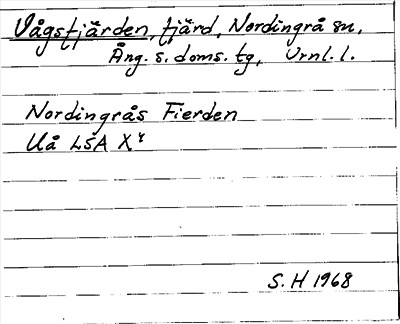 Vågsfjärden, fjärd, Nordingrå sn,
Ång. s. doms. tg, Vrnl. l.
Nordingrås Fierden
Uå LSA X⁴
S. H 1968